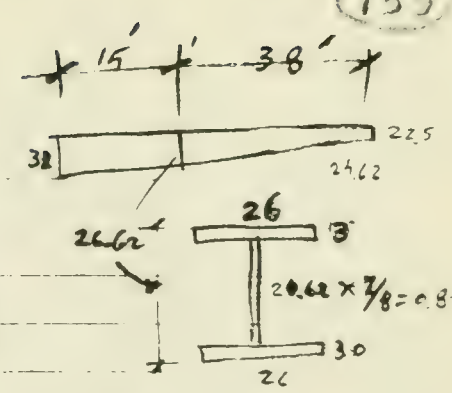 155
15' 38'
38 22.5
24.62
26.62 26 3"
20.62 × 7/8 = 0.8
3.0
26